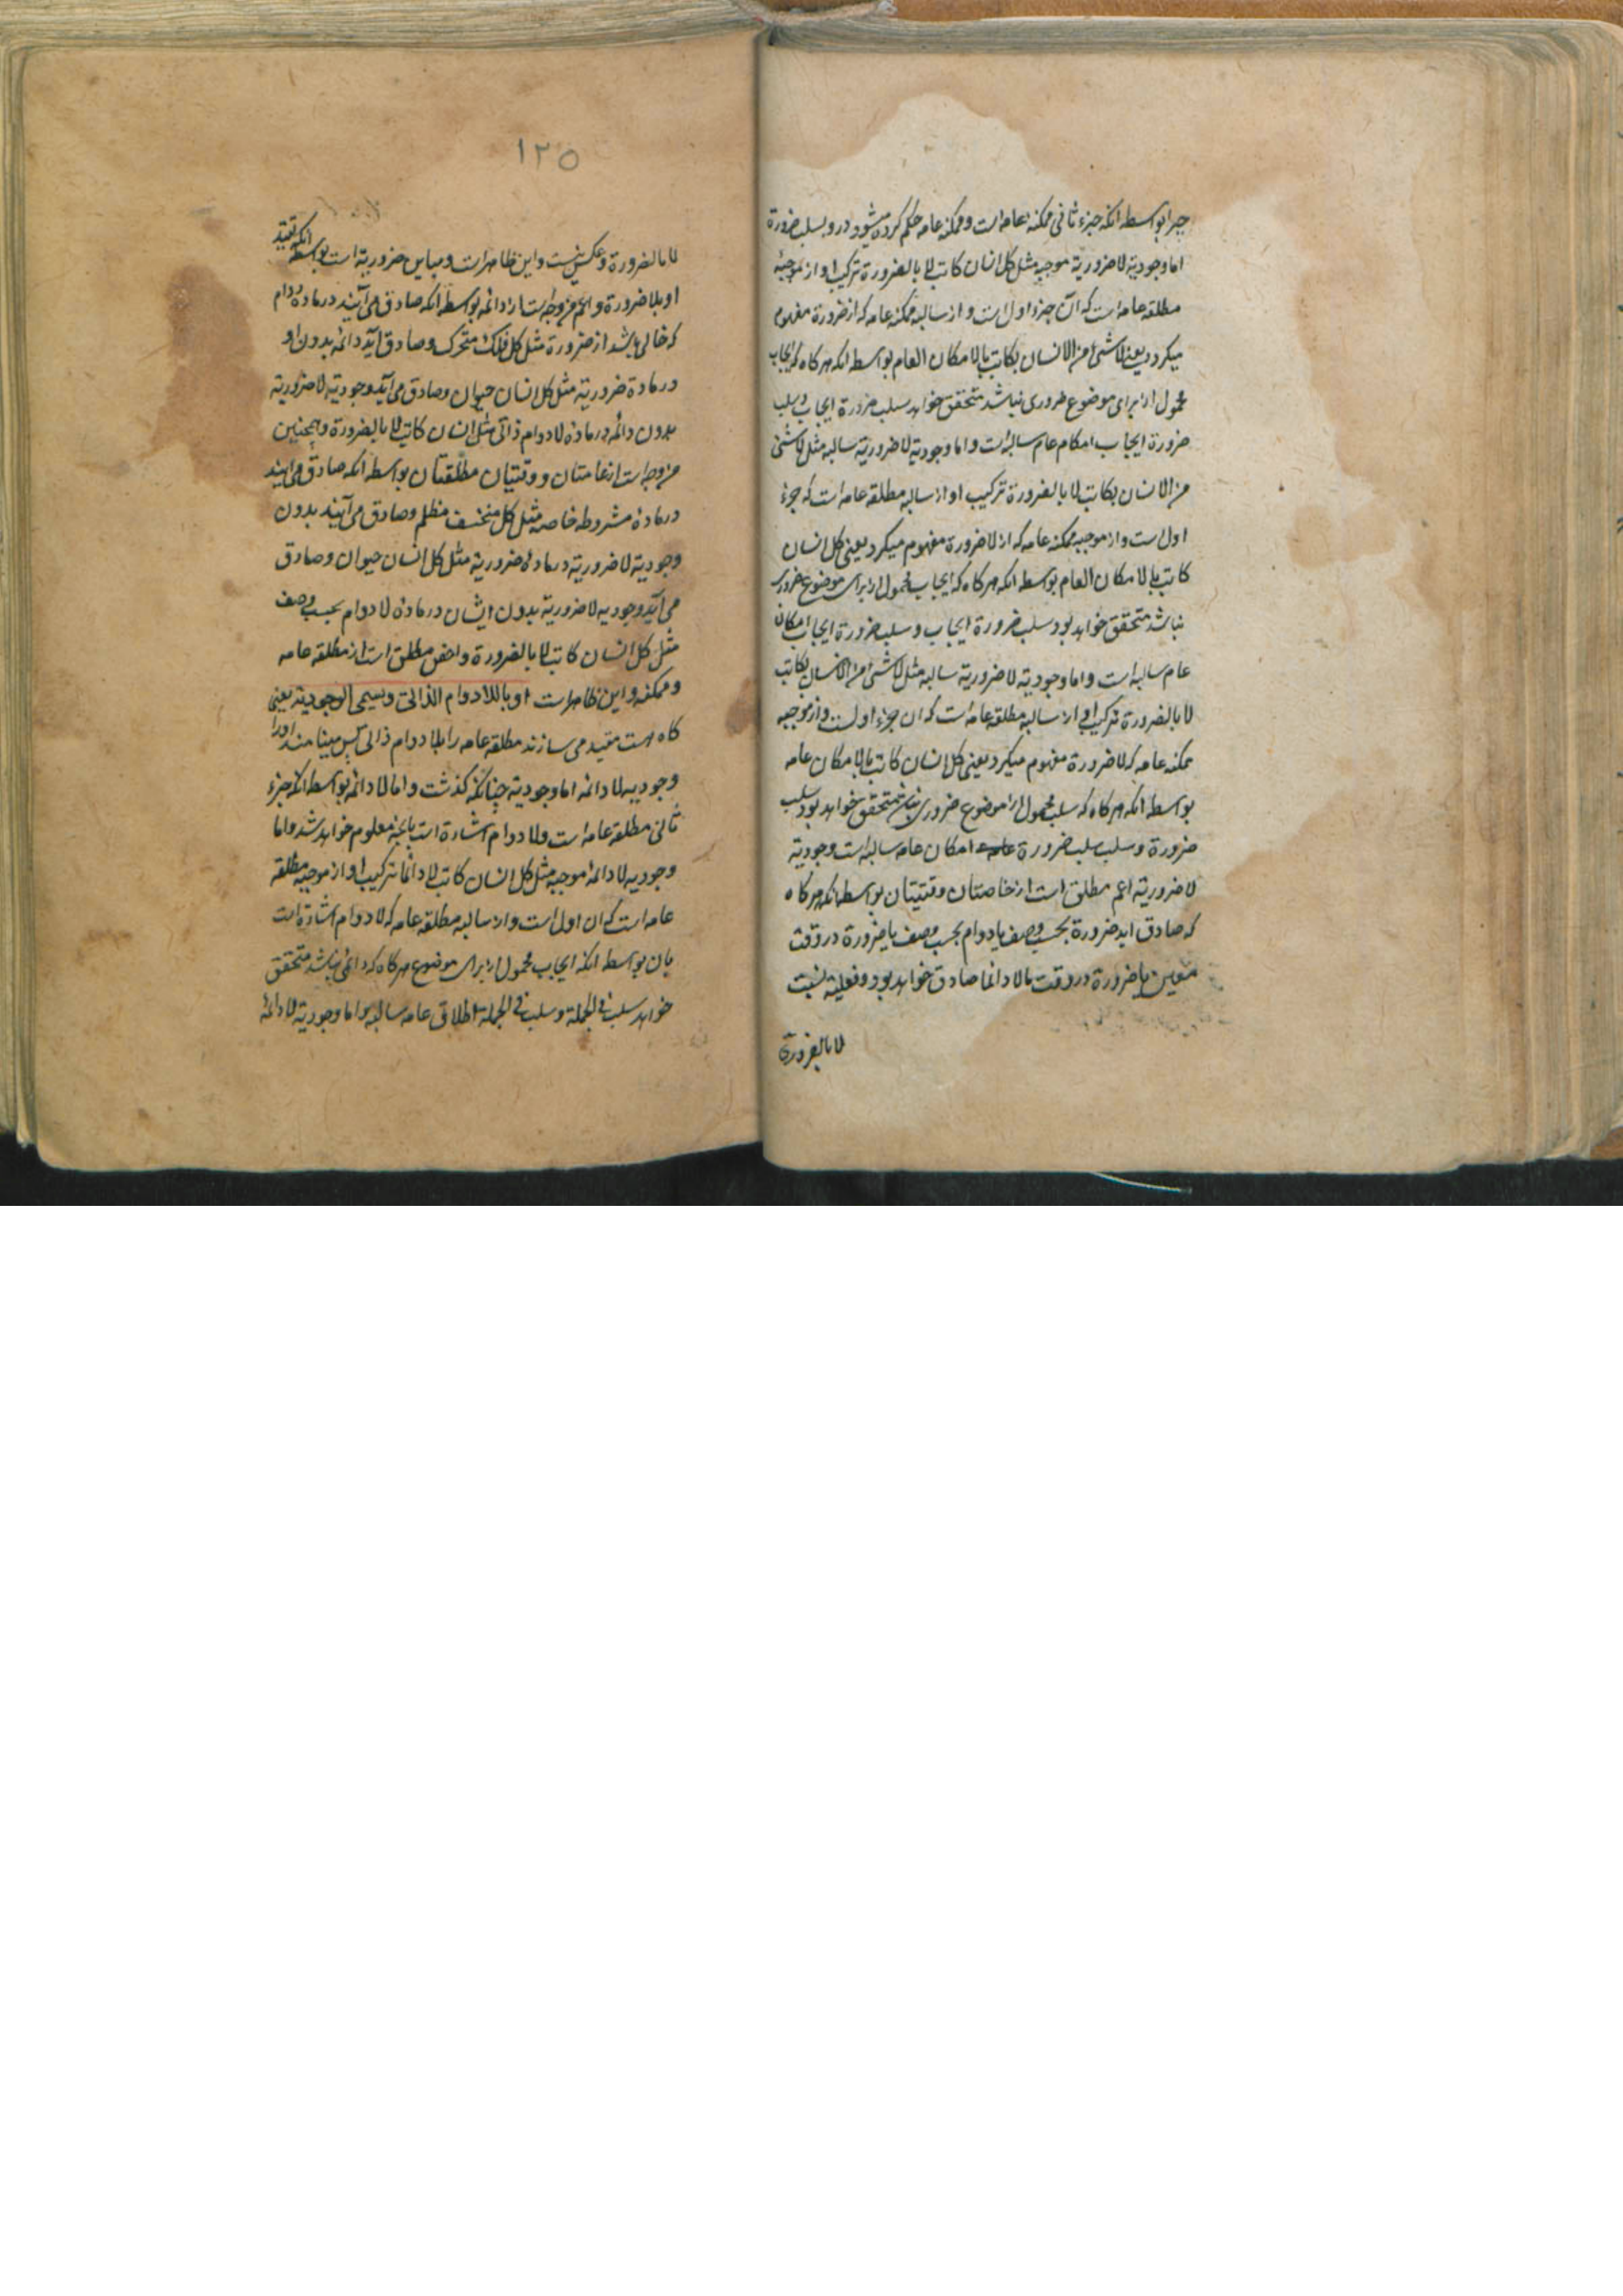 جبرا بواسطه انکه جزء ثانی ممکنه عامه است و ممکنه عامه حکم کرده میشود درو بسلب ضرورة
اما وجودیة لا ضروریة موجبه مثل کل انسان کاتب لا بالضرورة ترکیب او از موجبهٔ
مطلقه عامه است که آن جزء اول است و از سالبه ممکنه عامه که از ضرورة مفهوم
میکردد یعنی لا شئ من الانسان بکاتب بالامکان العام بواسطه انکه هر کاه که ایجاب
محمول از برای موضوع ضروری نباشد متحقق خواهد سلب ضرورة ایجاب و سلب
ضرورة ایجاب امکام عام سالبه است و اما وجودیة لا ضروریة سالبه مثل لا شئ
من الانسان بکاتب لا بالضرورة ترکیب او از سالبه مطلقه عامه است که جزء
اول است و از موجبه ممکنه عامه که از لا ضرورة مفهوم میکردد یعنی کل انسان
کاتب بالامکان العام بواسطه انکه هر کاه که ایجاب محمول از برای موضوع ضروری
نباشد متحقق خواهد بود سلب ضرورة ایجاب و سلب ضرورة ایجاب امکان
عام سالبه است و اما وجودیة لا ضروریة سالبه مثل لا شئ من الانسان بکاتب
لا بالضرورة ترکیب او از سالبه مطلقه عامه است که ان جزء اولست و از موجبه
ممکنه عامه که لا ضرورة مفهوم میکردد یعنی کل انسان کاتب بالامکان عامه
بواسطه انکه هر کاه که سلب محمول از موضوع ضروری نباشد متحقق خواهد بود سلب
ضرورة و سلب سلب ضرورة امکان عامه سالبه است وجودیة
لا ضروریة اعم مطلق است از خاصتان وقتیتان بواسطه انکه هر کاه
که صادق اید ضرورة بحسب وصف یا دوام بحسب وصف یا ضرورة در وقت
معین یا ضرورة در وقت ما لا دائما صادق خواهد بود و فعلیة نسبت
لا بالضرورة
١٢٥
لا بالضرورة و عکس نیست و این ظاهر است و مباین ضروریة است بواسطه انکه تقیید
او بلا ضرورة و اعم من وجه است از دائمه بواسطه انکه صادق می آیند در مادهٔ دوام
که خالی باشد از ضرورة مثل کل فلک متحرک و صادق آید دائمه بدون او
در مادة ضروریة مثل کل انسان حیوان و صادق می آید وجودیة لا ضروریة
بدون دائمه در مادهٔ لا دوام ذاتی مثل انسان کاتب لا بالضرورة و همچنین
من وجه است از عامتان و وقتیتان مطلقتان بواسطه انکه صادق می ایند
در مادهٔ مشروطه خاصه مثل کل منخسف مظلم و صادق می آیند بدون
وجودیة لا ضروریة در مادهٔ ضروریة مثل کل انسان حیوان و صادق
می آید وجودیه لا ضروریة بدون ایشان در مادهٔ لا دوام بحسب وصف
مثل کل انسان کاتب لا بالضرورة و اخص مطلق است از مطلقه عامه
و ممکنه و این ظاهر است او باللادوام الذاتی و یسمی الوجودیة یعنی
کاه هست مقید می سازند مطلقه عامه را بلا دوام ذاتی پس مینامند اورا
وجودیه لا دائمه اما وجودیة چنانکه کذشت و اما لا دائمه بواسطه انکه جزء
ثانی مطلقه عامه است و لا دوام اشارة است بانچه معلوم خواهد شد و اما
وجودیه لا دائمهٔ موجبه مثل کل انسان کاتب لا دائما ترکیب او از موجبه مطلقه
عامه است که ان اول است و از سالبه مطلقه عامه که لا دوام اشارة است
بان بواسطه انکه ایجاب محمول از برای موضوع هر کاه که دائمی نباشد متحقق
خواهد سلب فی الجملة و سلب فی الجملة اطلاق عامه سالبه و اما وجودیة لا دائمهٔ